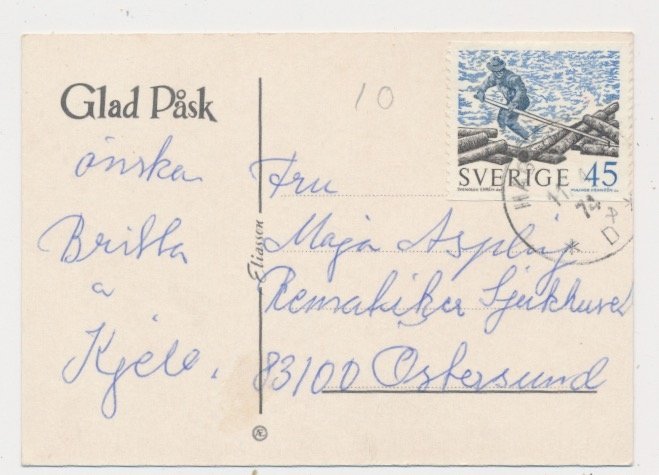 Glad Påsk
önska
Britta
a
Kjell.
10
SVERIGE 45
11
74
Eliasson
Fru
Maja Asplig
Remakiker Sjukhuset
83100 Östersund
Æ